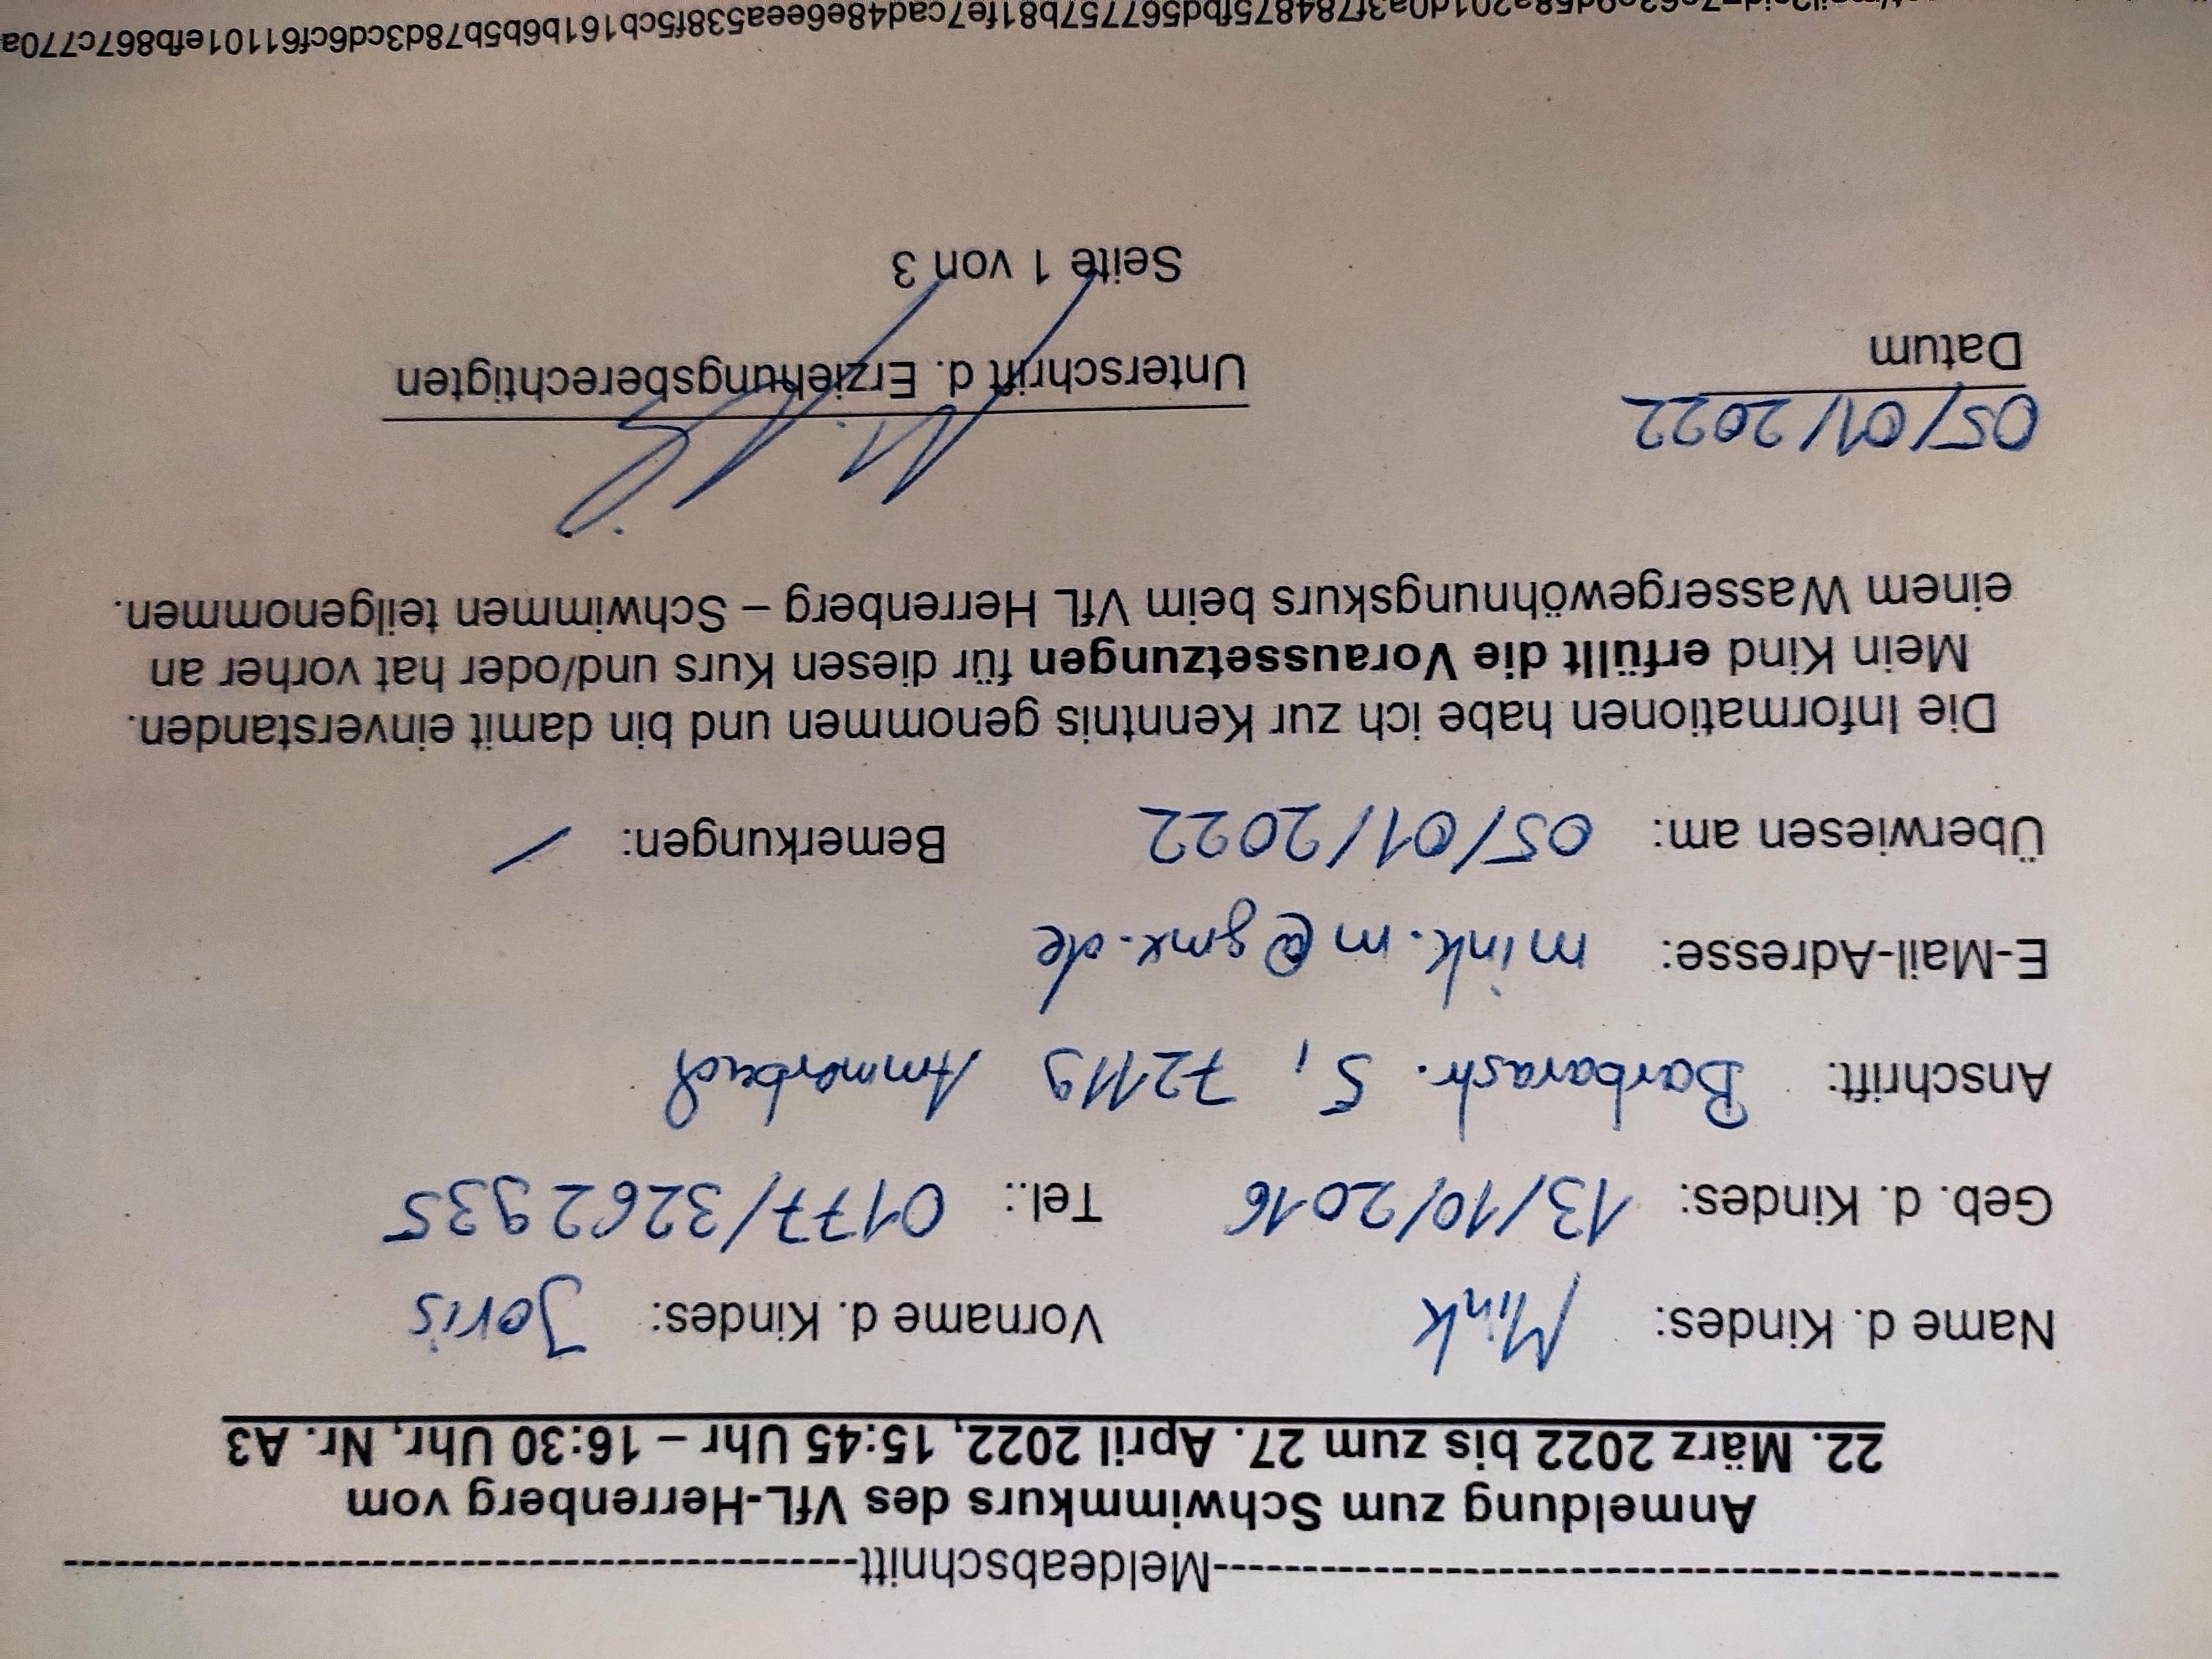 Meldeabschnitt
Anmeldung zum Schwimmkurs des VfL-Herrenberg vom
22. März 2022 bis zum 27. April 2022, 15:45 Uhr – 16:30 Uhr, Nr. A3
Name d. Kindes: Mink Vorname d. Kindes: Joris
Geb. d. Kindes: 13/10/2016 Tel.: 0177/3262935
Anschrift: Barbarastr. 5, 72119 Ammerbuch
E-Mail-Adresse: mink.m@gmx.de
Überwiesen am: 05/01/2022 Bemerkungen: /
Die Informationen habe ich zur Kenntnis genommen und bin damit einverstanden.
Mein Kind erfüllt die Voraussetzungen für diesen Kurs und/oder hat vorher an
einem Wassergewöhnungskurs beim VfL Herrenberg – Schwimmen teilgenommen.
05/01/2022
Datum Unterschrift d. Erziehungsberechtigten
Seite 1 von 3